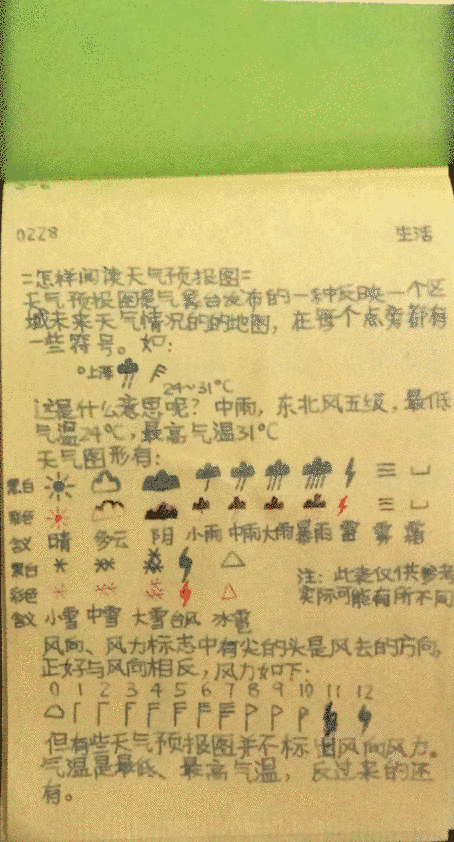 0228 生活
=怎样阅读天气预报图=
天气预报图是气象台发布的一种反映一个区
域未来天气情况的的地图，在每个点旁都有
一些符号。如：
上海
24~31°C
这是什么意思呢？中雨，东北风五级，最低
气温24°C，最高气温31°C
天气图形有：
黑白
彩色
含义 晴 多云 阴 小雨 中雨 大雨 暴雨 雷 雾 霜
黑白
彩色
含义 小雪 中雪 大雪 台风 冰雹
注：此表仅供参考
实际可能有所不同
风向、风力标志中有尖的头是风去的方向，
正好与风向相反，风力如下：
0 1 2 3 4 5 6 7 8 9 10 11 12
但有些天气预报图并不标出风向风力。
气温是最低、最高气温，反过来的还
有。